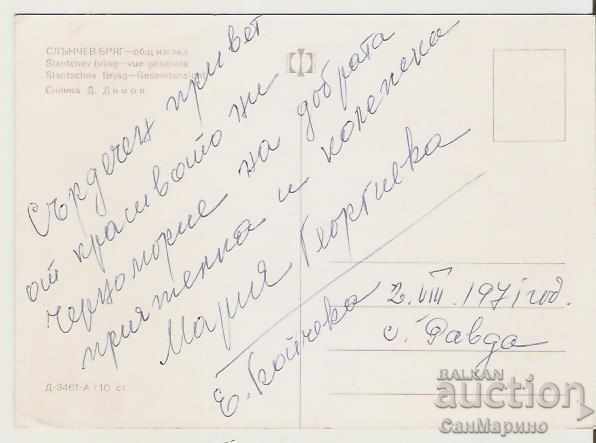 СЛЪНЧЕВ БРЯГ—общ изглед
Slantchev briag—vue générale
Slantschev Brjag—Gesamtansicht
Снимка Д. Димов
Сърдечен привет
от красивото ни
черноморие на добрата
приятелка и колежка
Мария Георгиева
Е. Койчева
2.VIII.1971 год.
с. Равда
Д-3461-А
10 ст.
BALKAN
auction
СанМарино